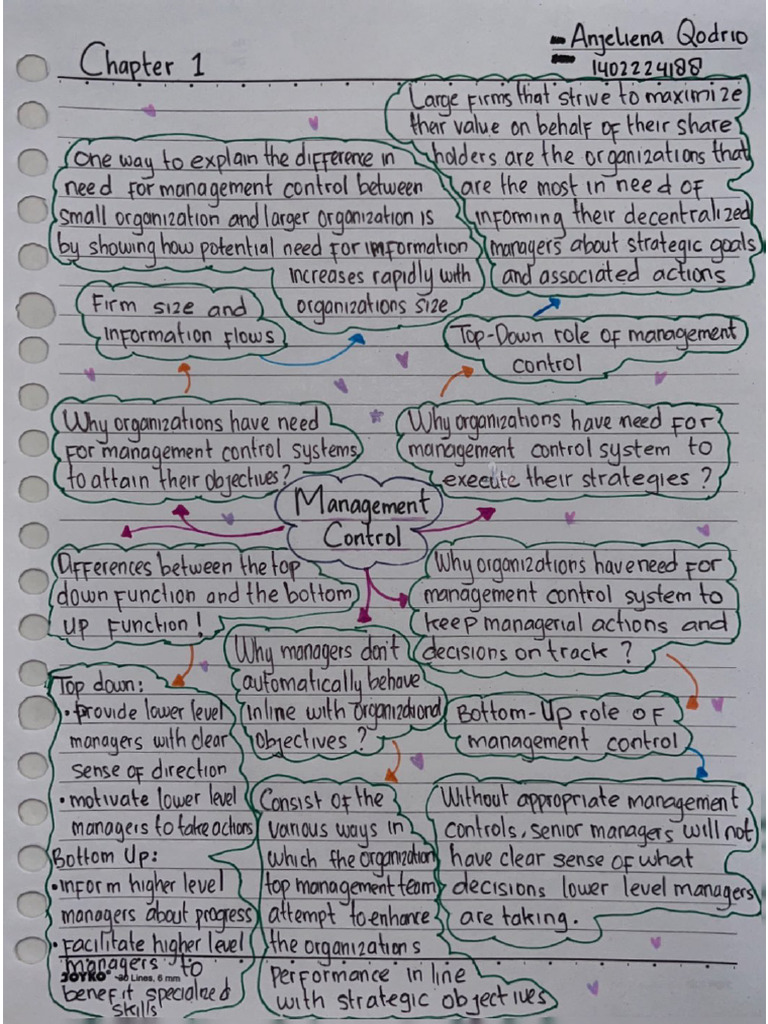 Chapter 1
Anjeliena Qodrio
1402224188
Large firms that strive to maximize
their value on behalf of their share
holders are the organizations that
are the most in need of
informing their decentralized
managers about strategic goals
and associated actions
One way to explain the difference in
need for management control between
small organization and larger organization is
by showing how potential need for information
increases rapidly with
organizations size
Firm size and
information flows
Top-Down role of management
control
Why organizations have need
for management control systems
to attain their objectives?
Why organizations have need for
management control system to
execute their strategies ?
Management
Control
Differences between the top
down function and the bottom
up function !
Why organizations have need for
management control system to
keep managerial actions and
decisions on track ?
Why managers don't
automatically behave
inline with organizational
objectives ?
Bottom-Up role of
management control
Top down:
• provide lower level
managers with clear
sense of direction
• motivate lower level
managers to take actions
Bottom Up:
• inform higher level
managers about progress
• facilitate higher level
managers to
benefit specialized
skills
Consist of the
various ways in
which the organization
top management team
attempt to enhance
the organizations
performance in line
with strategic objectives
Without appropriate management
controls, senior managers will not
have clear sense of what
decisions lower level managers
are taking.
JOYKO 30 Lines, 6 mm